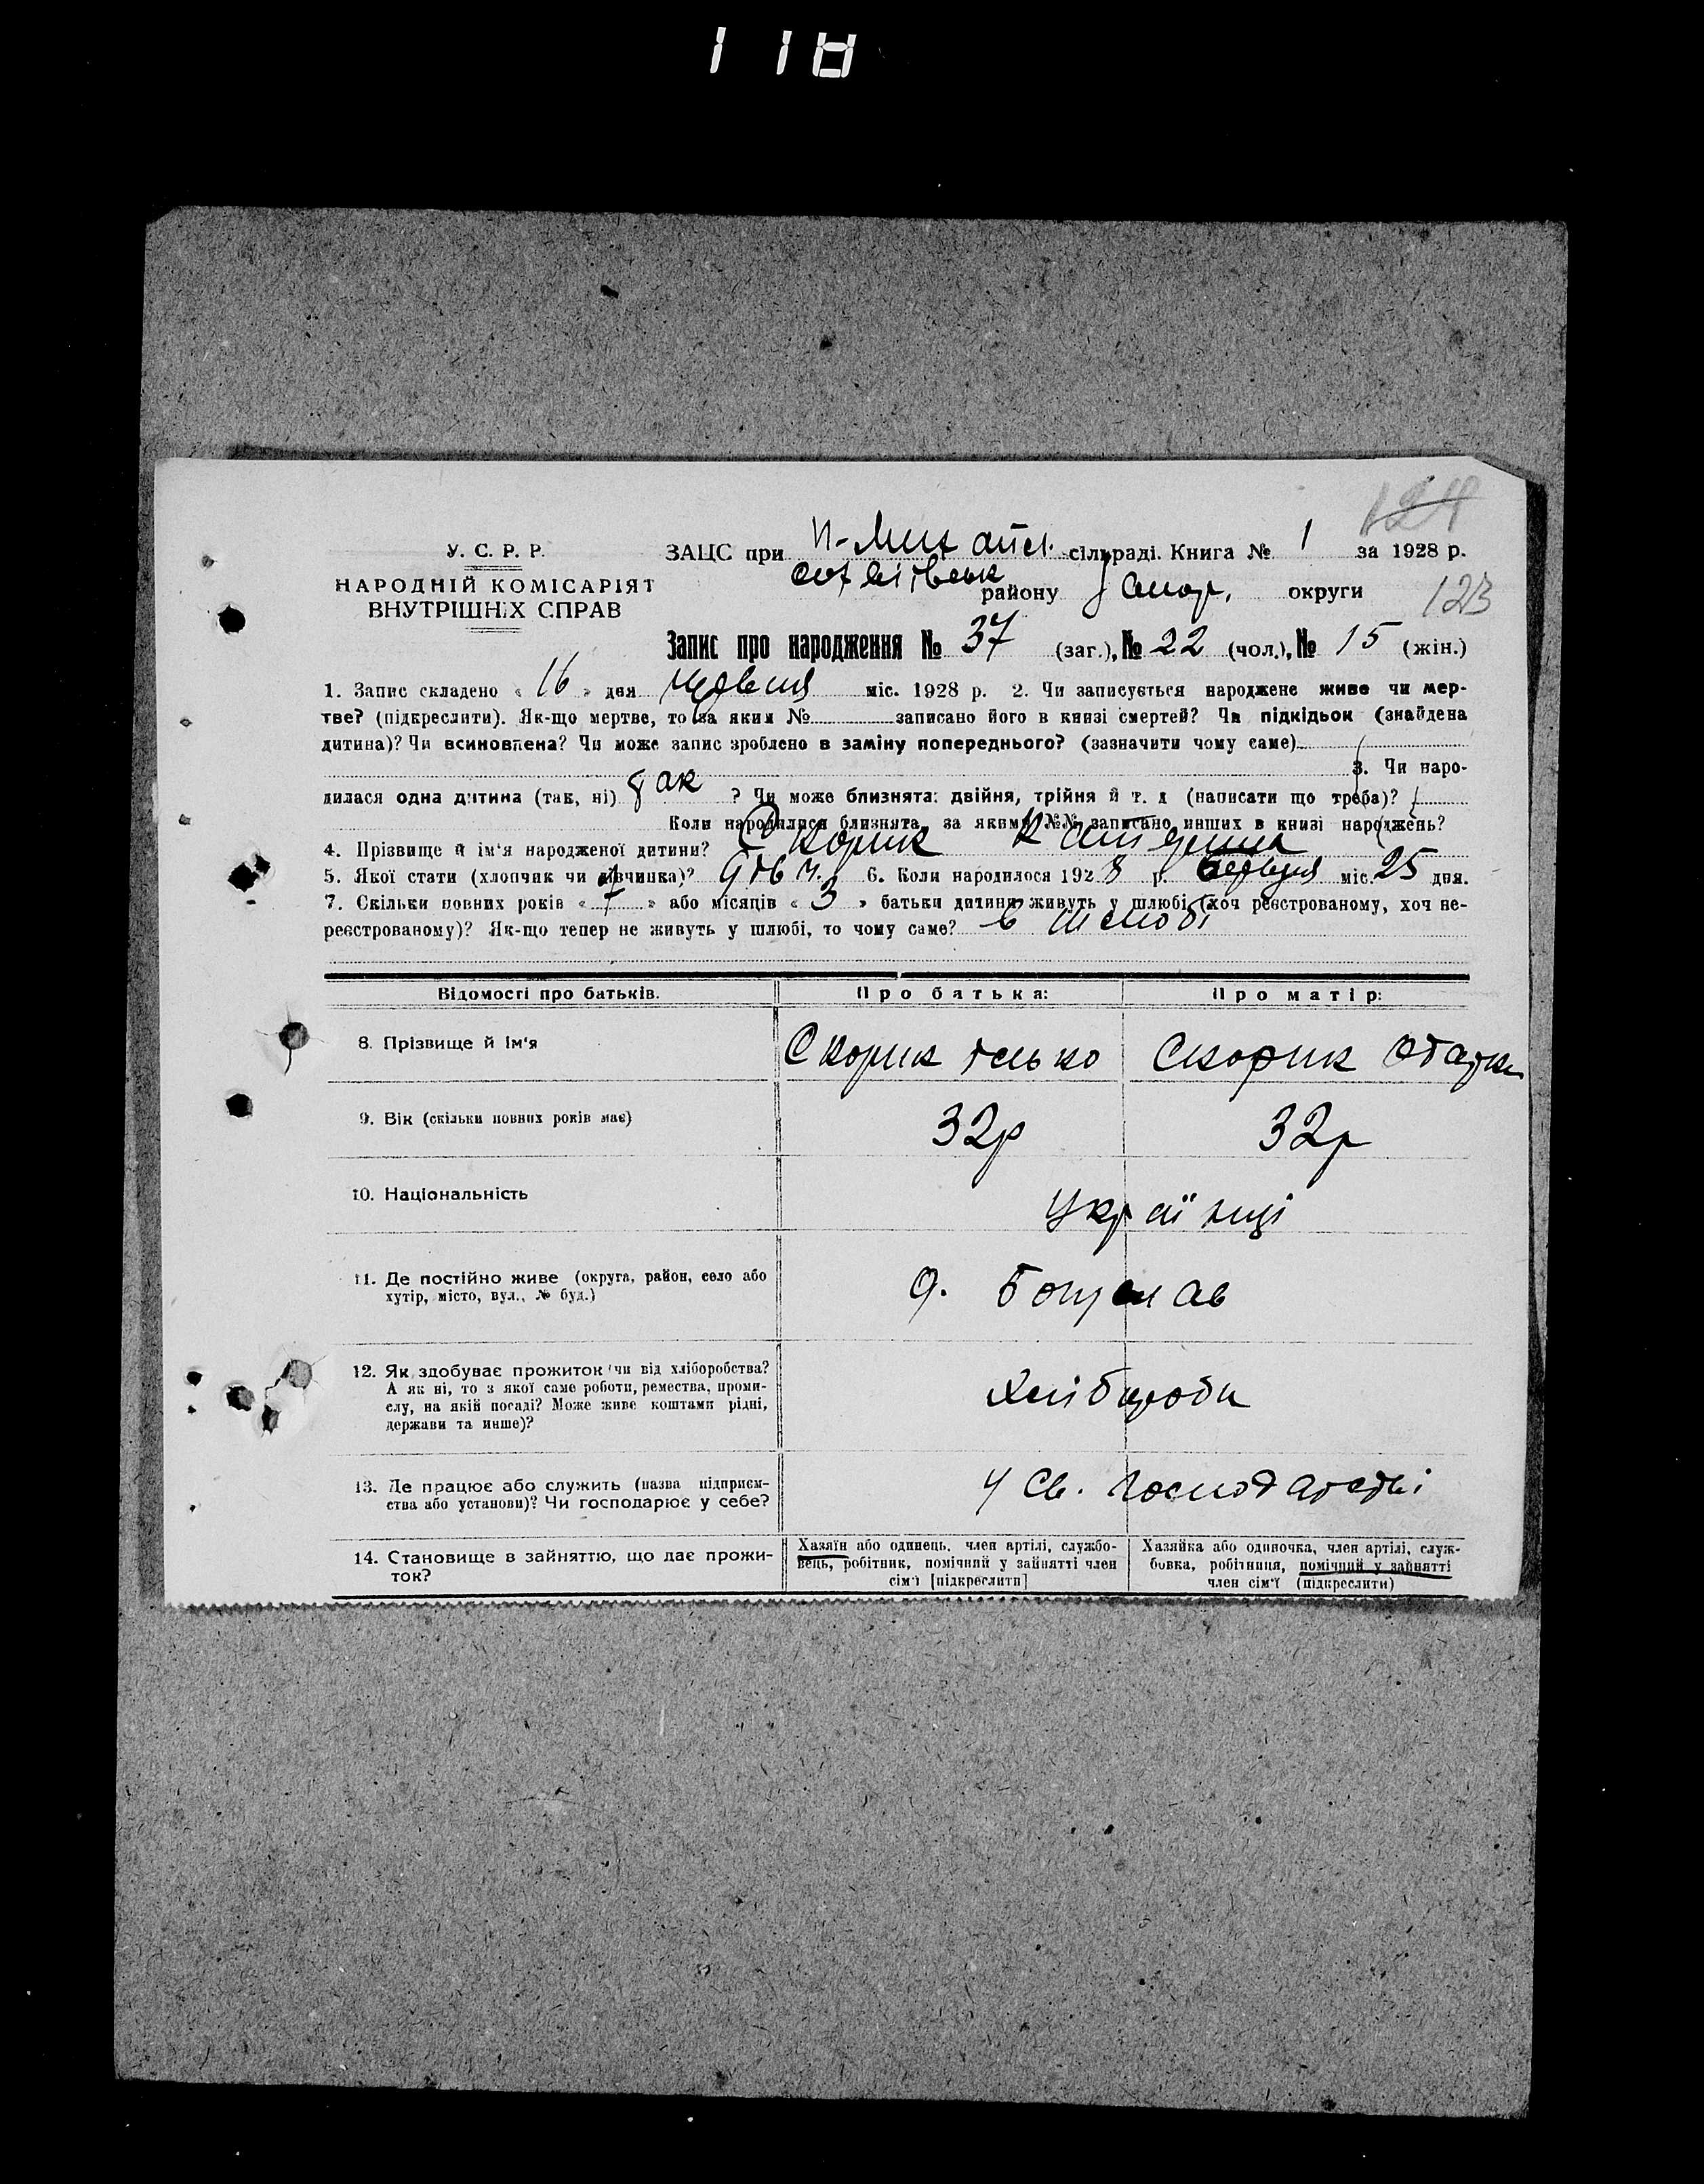 118
124
У. С. Р. Р.
НАРОДНІЙ КОМІСАРІЯТ
ВНУТРІШНІХ СПРАВ
ЗАЦС при сільраді. Книга № 1 за 1928 р.
району округи
123
Запис про народження № 37 (заг.), № 22 (чол.), № 15 (жін.)
1. Запис складено « 16 » дня червня міс. 1928 р. 2. Чи записується народжене живе чи мер-
тве? (підкреслити). Як-що мертве, то за яким № записано його в книзі смертей? Чи підкідьок (знайдена
дитина)? Чи всиновлена? Чи може запис зроблено в заміну попереднього? (зазначити чому саме)
3. Чи наро-
дилася одна дитина (так, ні) так ? Чи може близнята: двійня, трійня й т. д (написати що треба)?
Коли народилися близнята, за якими №№ записано инших в книзі народжень?
4. Прізвище й ім'я народженої дитини? Скорик
5. Якої стати (хлопчик чи дівчинка)? дівч. 6. Коли народилося 1928 р. міс. 25 дня.
7. Скільки повних років « » або місяців « 3 » батьки дитини живуть у шлюбі (хоч реєстрованому, хоч не-
реєстрованому)? Як-що тепер не живуть у шлюбі, то чому саме? в шлюбі
Відомості про батьків. Про батька: Про матір:
8. Прізвище й ім'я Скорик Скорик
9. Вік (скільки повних років має) 32р 32р
10. Національність Українці
11. Де постійно живе (округа, район, село або
хутір, місто, вул., № буд.)
12. Як здобуває прожиток чи від хліборобства?
А як ні, то з якої саме роботи, ремества, проми-
слу, на якій посаді? Може живе коштами рідні,
держави та инше)?
Хлібороби
13. Де працює або служить (назва підприєм-
ства або установи)? Чи господарює у себе?
У св. господарстві
14. Становище в зайняттю, що дає прожи-
ток?
Хазяїн або одинець, член артілі, службо-
вець, робітник, помічний у зайнятті член
сім'ї [підкреслити]
Хазяйка або одиночка, член артілі, служ-
бовка, робітниця, помічний у зайнятті
член сім'ї (підкреслити)